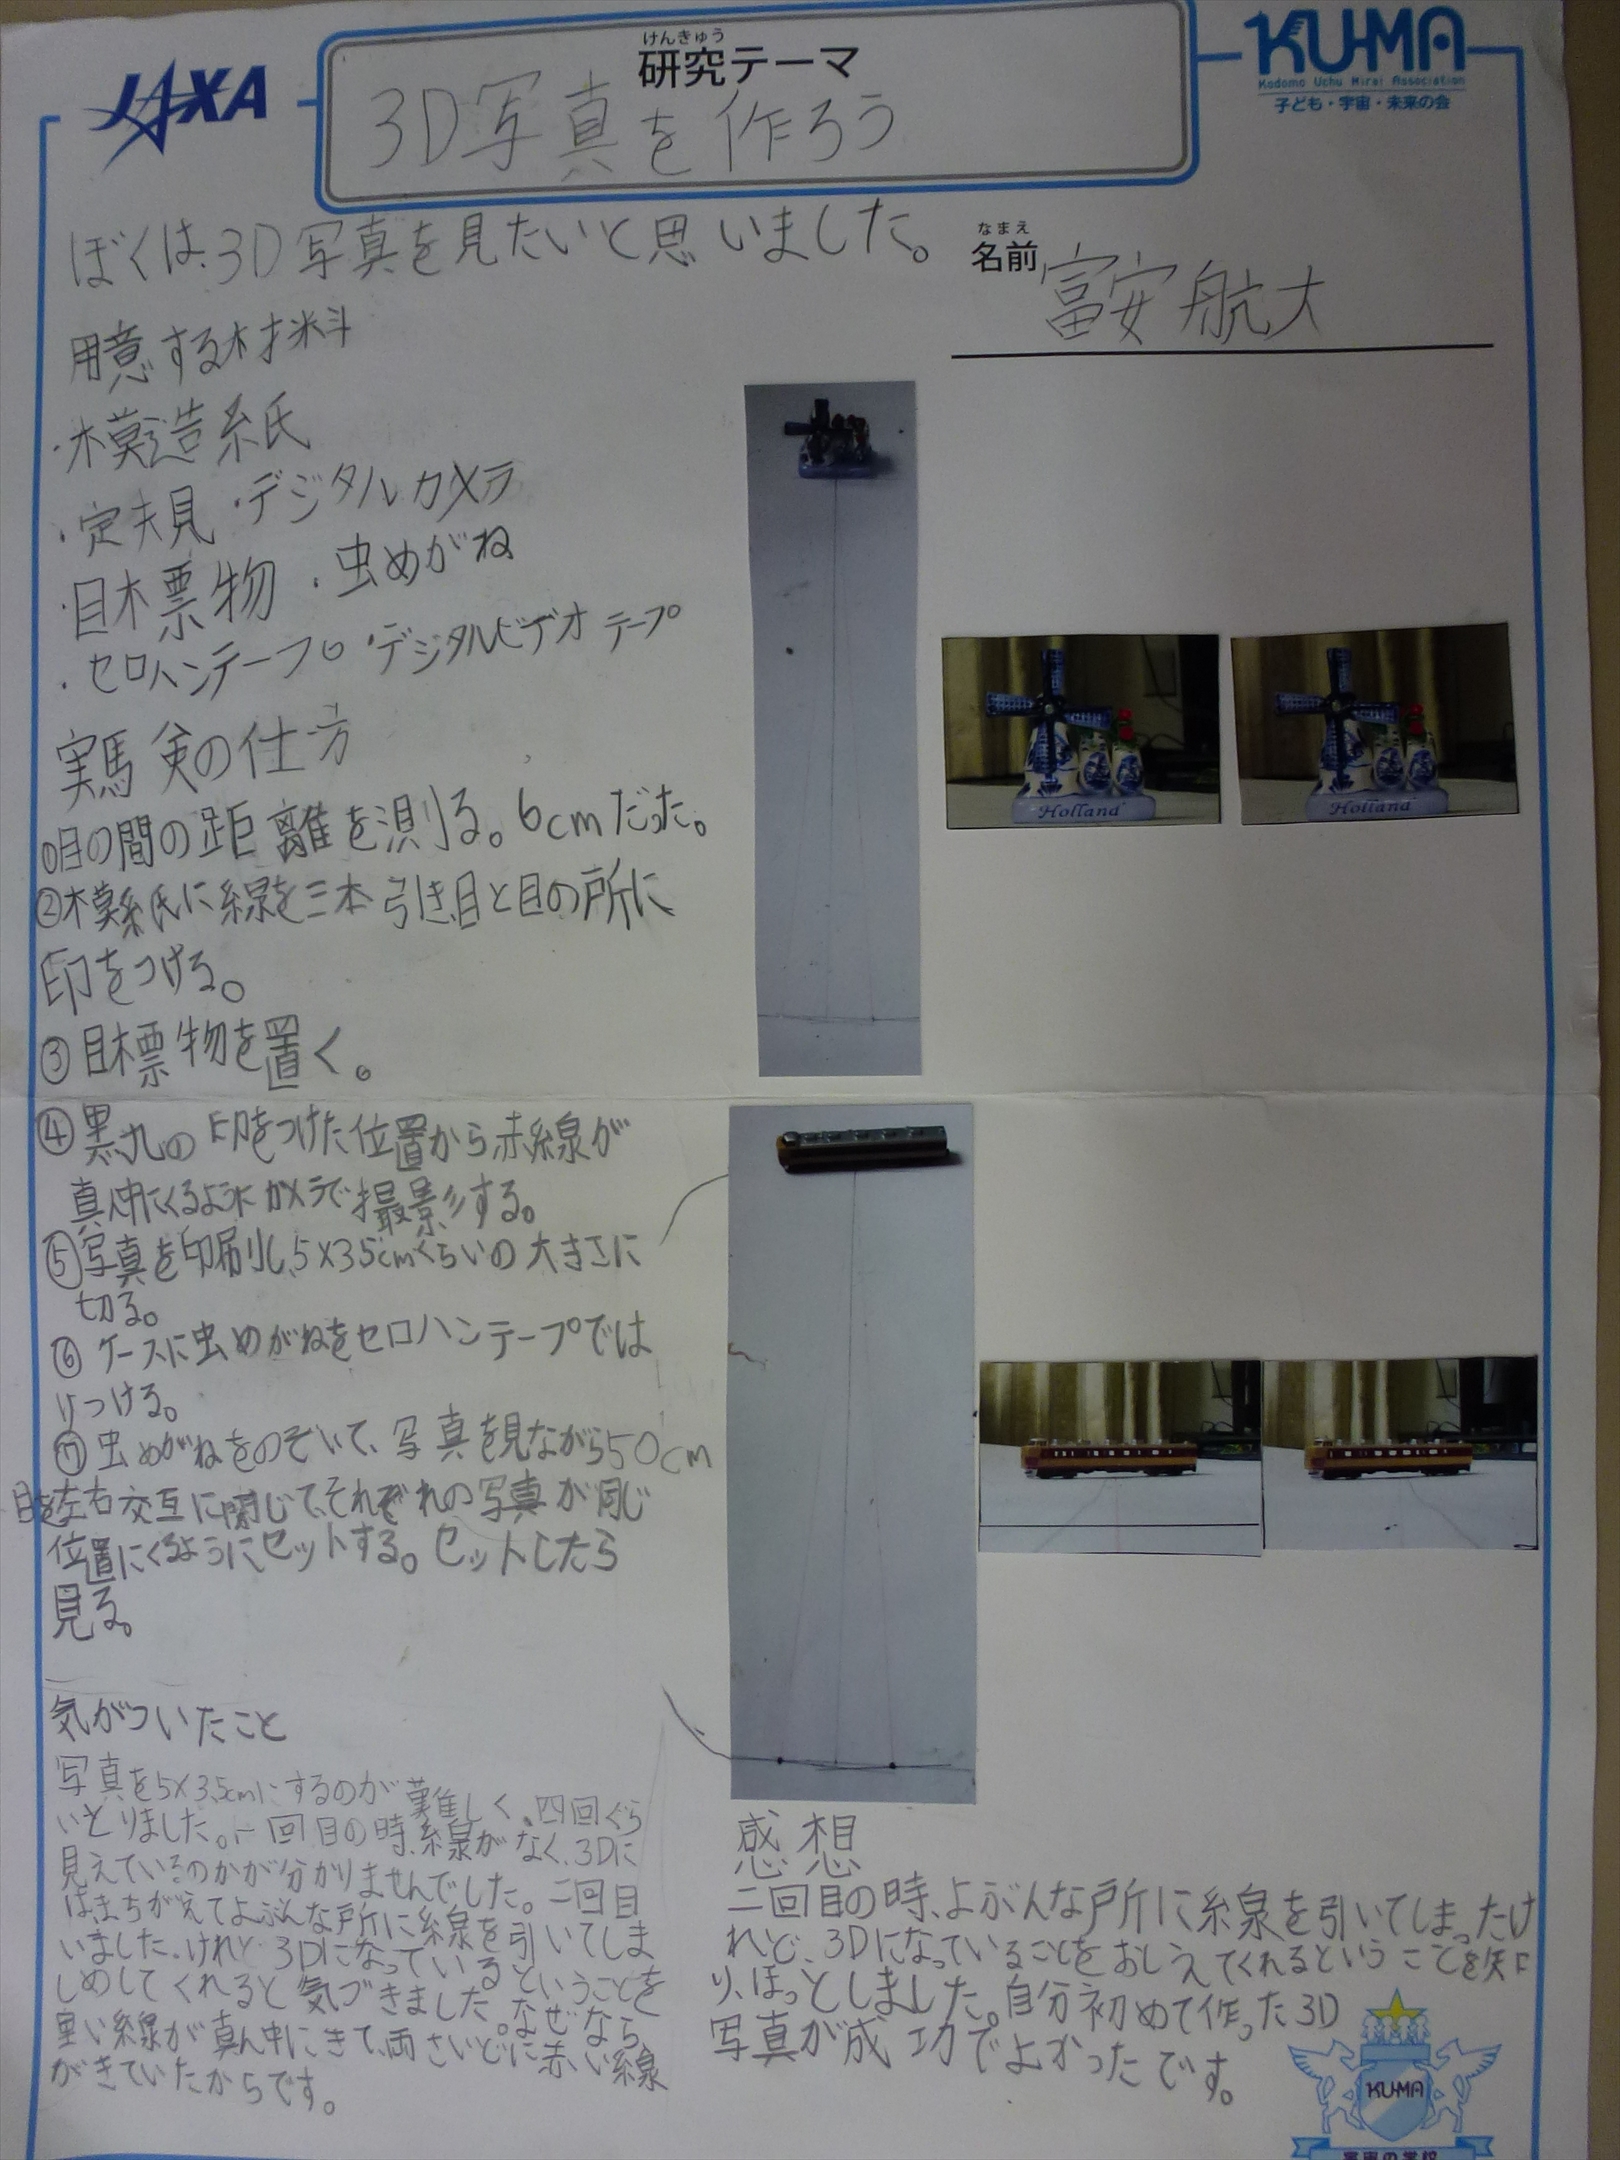 JAXA
けんきゅう
研究テーマ
3D写真を作ろう
KU-MA
Kodomo Uchu Mirai Association
子ども・宇宙・未来の会
ぼくは、3D写真を見たいと思いました。
なまえ
名前
富安航大
用意する材料
・模造紙
・定規 ・デジタルカメラ
・目標物 ・虫めがね
・セロハンテープ ・デジタルビデオテープ
実験の仕方
①目の間の距離を測る。6cmだった。
②模紙に線を三本引き、目と目の所に
印をつける。
③目標物を置く。
④黒丸の印をつけた位置から赤線が
真ん中にくるようにカメラで撮影する。
⑤写真を印刷し、5×3.5cmくらいの大きさに
切る。
⑥ケースに虫めがねをセロハンテープでは
りつける。
⑦虫めがねをのぞいて、写真を見ながら50cm
目を左右交互に閉じて、それぞれの写真が同じ
位置にくるようにセットする。セットしたら
見る。
Holland
Holland
気がついたこと
写真を5×3.5cmにするのが難しく、四回ぐら
いとりました。一回目の時、線がなく、3Dに
見えているのかが分かりませんでした。二回目
は、まちがえてよぶんな所に線を引いてしま
いました。けれど、3Dになっているということを
しめしてくれると気づきました。なぜなら、
黒い線が真ん中にきて、両さいどに赤い線
がきていたからです。
感想
二回目の時、よぶんな所に線を引いてしまったけ
れど、3Dになっていることをおしえてくれるということを知
り、ほっとしました。自分初めて作った3D
写真が成功でよかったです。
KU-MA
宇宙の学校